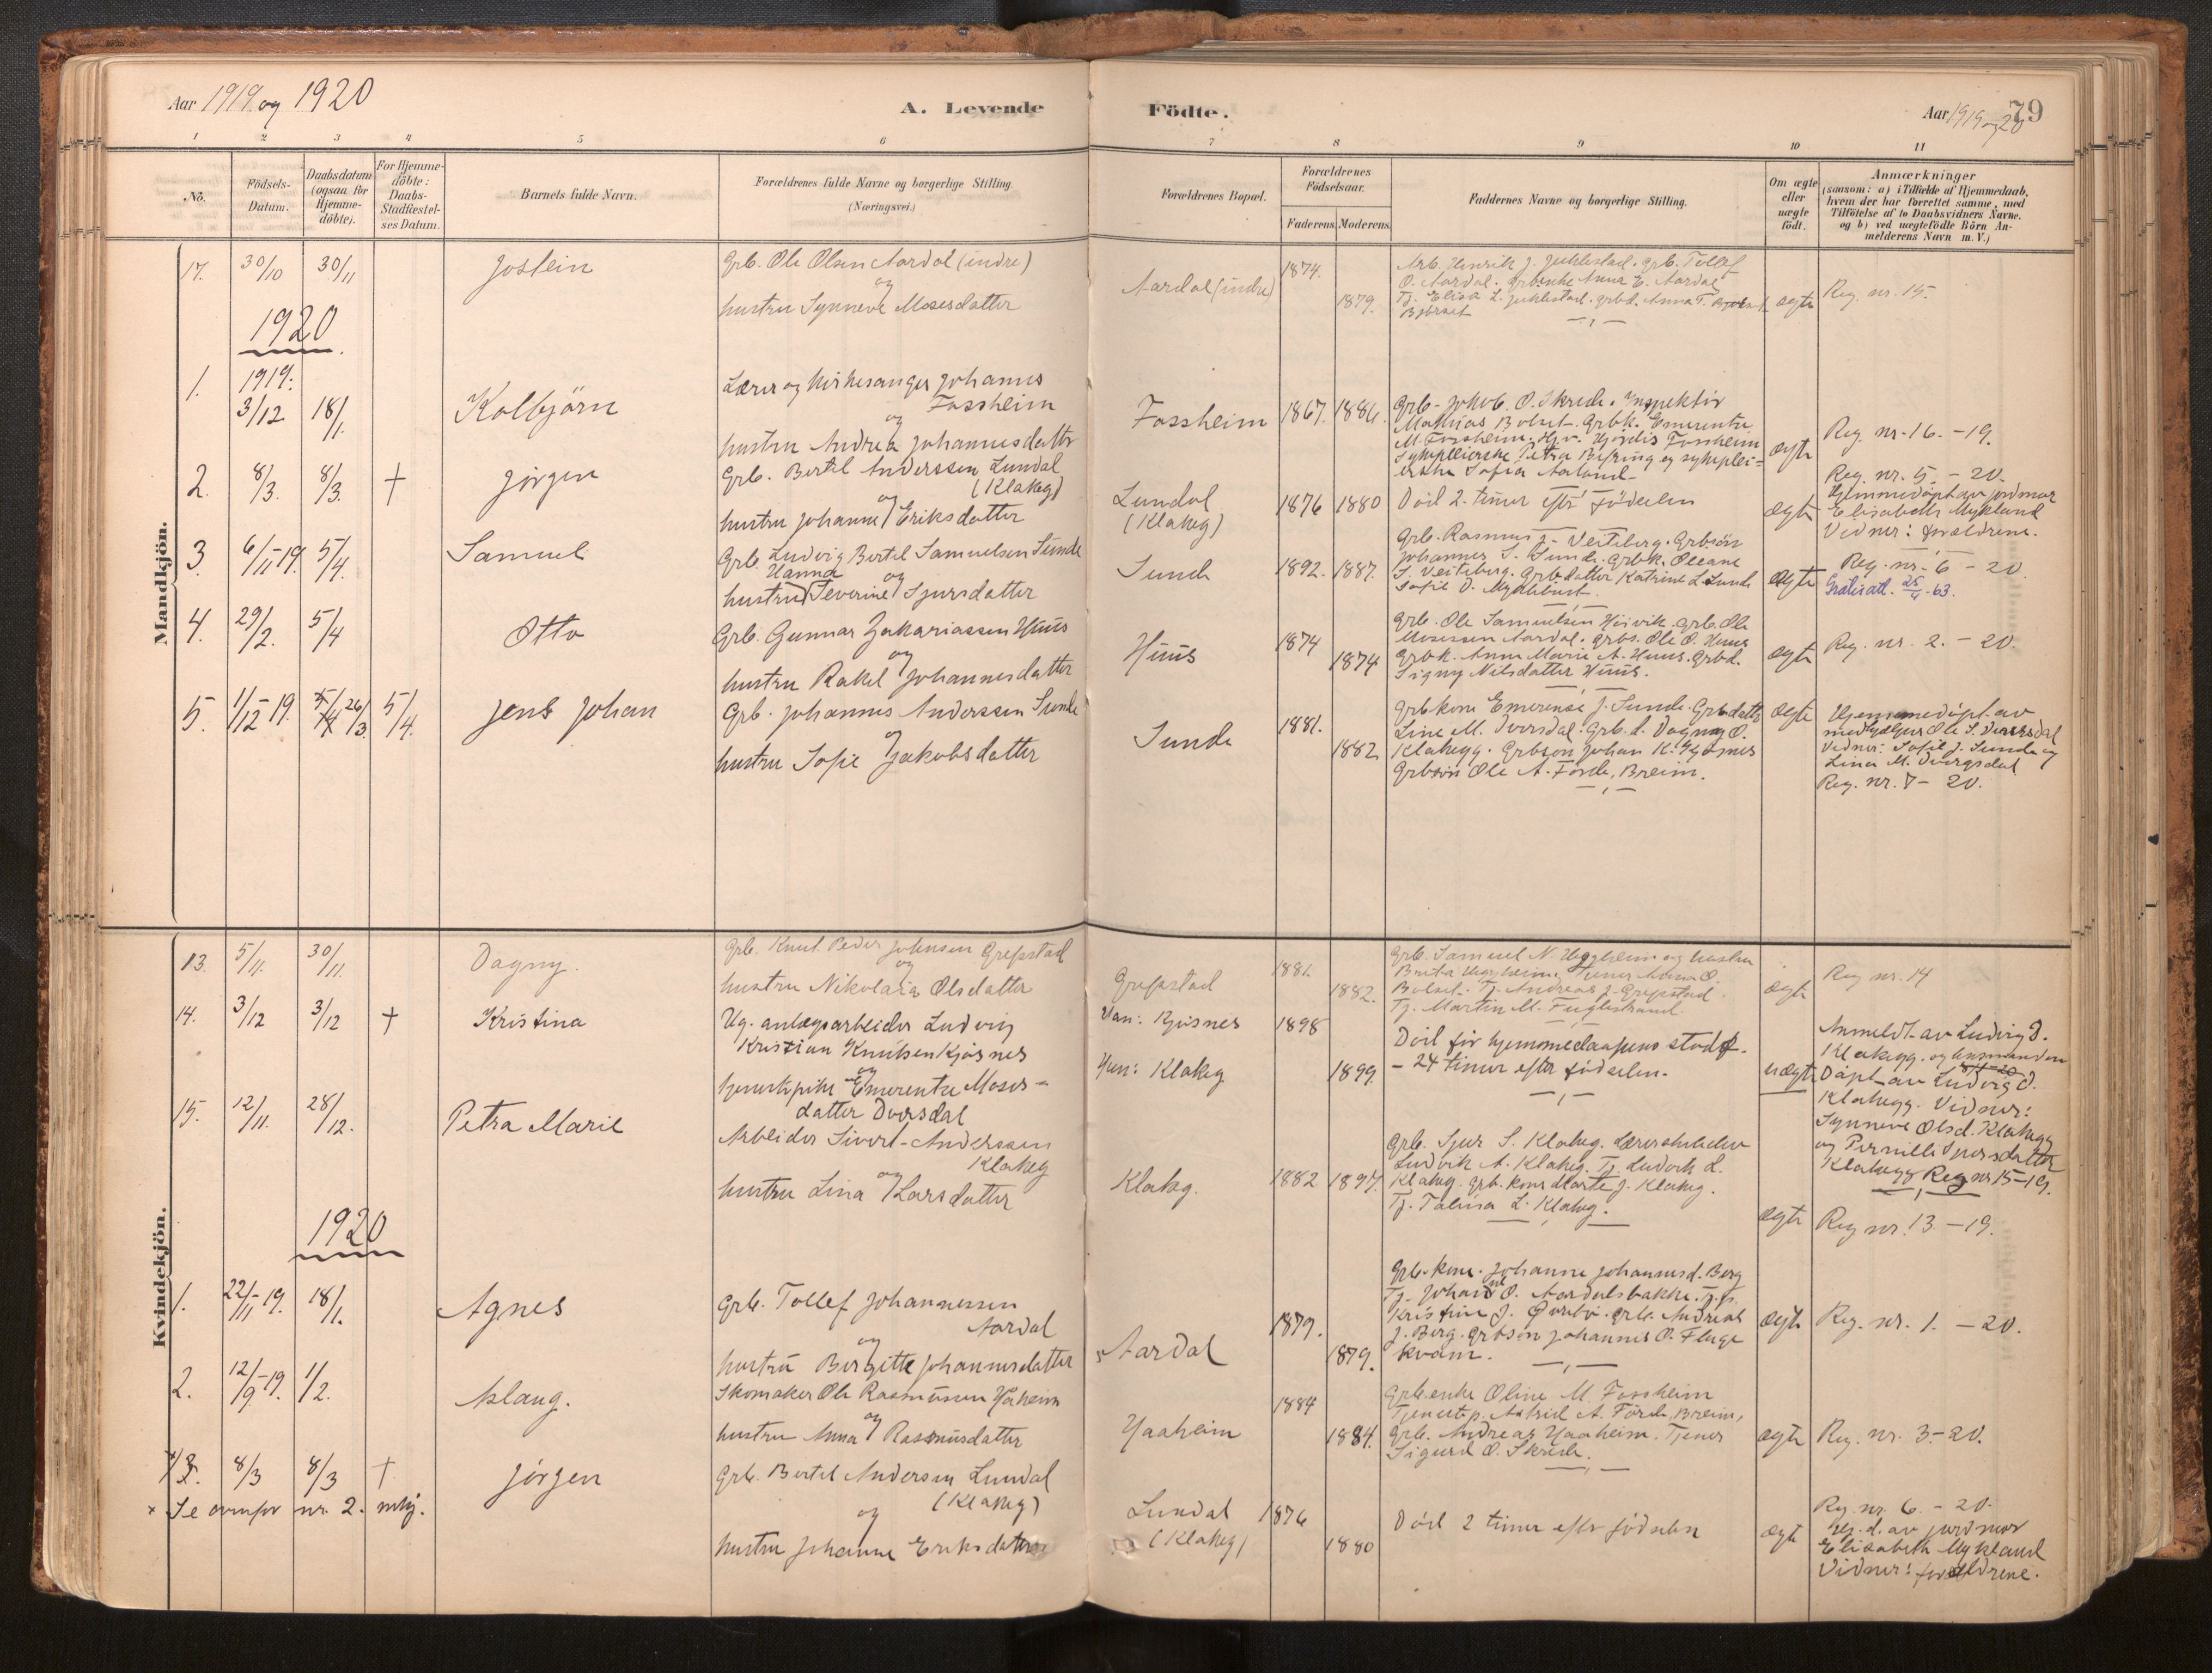 Aar 1919 og 1920
A. Levende
Födte.
Aar 1919 og 20
79
1 2 3 4 5 6 7 8 9 10 11
No.
Födsels-
Datum.
Daabsdatum
(ogsaa for
Hjemme-
döbte).
For Hjemme-
döbte:
Daabs-
Stadfæstel-
ses Datum.
Barnets fulde Navn.
Forældrenes fulde Navne og borgerlige Stilling.
(Næringsvei.)
Forældrenes Bopæl.
Forældrenes
Födselsaar.
Faderens. Moderens.
Faddernes Navne og borgerlige Stilling.
Om ægte
eller
uægte
födt.
Anmærkninger
(saasom: a) i Tilfælde af Hjemmedaab,
hvem der har forrettet samme, med
Tilföielse af to Daabsvidners Navne,
og b) ved uægtefödte Börn An-
melderens Navn m. V.)
Mandkjön.
17. 30/10 30/11 Jostein
Grb. Ole Olsen Aardal (indre)
og
hustru Synneve Mosesdatter
Aardal (indre) 1874. 1879.
Arb. Henrik J. Juklestad. Grb. Tollef
O. Aardal. Grbenke Anna E. Aardal
Tj. Elisa L. Juklestad. Grbd. Anna T.
Bjørset
ægte
Reg. nr. 15.
1920
1. 1919: 3/12 18/1. Kolbjörn
Lærer og kirkesanger Johannes
Fossheim
og
hustru Andrea Johannesdatter
Fossheim 1867. 1886.
Grb. Jakob O. Skrede. Inspektör
Mathias Bolset. Grbk. Emerentse
M. Fossheim. Hjördis Fossheim
Sykepleierske Petra og sykeplei=
erske Sofia Aaland
ægte
Reg. nr. 16. - 19.
2. 8/3. 8/3. † Jörgen
Grb. Bertel Anderssen Lundal
(Klakeg)
og
hustru Johanne Eriksdatter
Lundal
(Klakeg)
1876 1880
Död 2. timer eftr födselen
ægte
Reg. nr. 5. - 20.
Hjemmedöpt av jordmor
Elisabeth Mykland
Vidner: forældrene.
3. 6/11 19. 5/4. Samuel
Grb. Ludvig Bertel Samuelsen Sunde
Hanna og
hustru Severine Sjursdatter
Sunde 1892. 1887.
Grb. Rasmus J. Veiteberg. Grbsön
Johannes S. Sunde. Grbk. Oleane
S. Veiteberg. Grb.datter Katrine L. Sunde
Sofie D. Myklebust.
ægte
Reg. nr. 6 - 20.
Gratisatt. 25/4 - 63.
4. 29/2. 5/4 Otto
Grb. Gunnar Zakariassen Huus
og
hustru Rakel Johannesdatter
Huus 1874 1874
Grb. Ole Samuelsen Heivik. Grb. Ole
Mosessen Aardal. Grbs. Ole O. Huus
Grbk. Anna Marie A. Huus. Grbd.
Signy Nilsdatter Huus.
ægte
Reg. nr. 2. - 20.
5. 1/12 19. 26/3. 5/4. Jens Johan
Grb. Johannes Anderssen Sunde
og
hustru Sofie Jakobsdatter
Sunde 1881. 1882.
Grbkone Emerense J. Sunde. Grb.datter
Line M. Dvergsdal. Grb.d. Dagny O.
Klakegg. Grbson Johan K. Kjösnes
Grbsön Ole A. Förde, Breim.
ægte
Hjemmedöpt av
medhjælper Ole S. Dvergsdal
Vidner: Sofie J. Sunde og
Lina M. Dvergsdal
Reg. nr. 7 - 20.
Kvindekjön.
13. 5/11. 30/11. Dagny.
Grb. Knut Peder Johnsen Grepstad
og
hustru Nikolaia Olsdatter
Grepstad 1881. 1882.
Grb. Samuel N. Heggheim og hustru
Brita Heggheim. Tjener Anna O.
Bolset. Tj. Andreas J. Grepstad.
Tj. Martin M. Fuglestrand.
ægte
Reg nr. 14
14. 3/12 3/12 † Kristina
Ug. anlægsarbeider Ludvig
Kristian Knutsen Kjösnes
og
tjenestepike Emerentse Moses-
datter Dversdal
Kjösnes 1898
Hun: Klakeg 1899.
Död för hjemmedaapens stadf.
- 24 timer efter födselen.
uægte
Anmeldt av Ludvig O.
Klakegg. og lensmanden
Döpt av Ludvig O.
Klakegg. Vidner:
Synneve Olsd. Klakegg
og Pernille Sjursdatter
Klakegg Reg nr 15-19.
15. 12/11. 28/12. Petra Marie
Arbeider Sivert Anderssen
Klakeg
og
hustru Lina Larsdatter
Klakeg. 1882 1897.
Grb. Sjur S. Klakeg. Lærerskelev
Ludvik A. Klakeg. Tj. Ludvik L.
Klakeg. Grb. kone Marte J. Klakeg.
Tj. Talina L. Klakeg.
ægte
Reg nr. 13. - 19.
1920
1. 22/11 19. 18/1. Agnes
Grb. Tollef Johannessen
Aardal
og
hustru Bergitte Johannesdatter
Aardal 1879. 1879.
Grb.kone. Johanne Johannesd. Berg
Tj. Johan O. Aardalsbakke. Tj.p.
Kristine J. Övrebö. Grb. Andreas
J. Berg. Grbsön Johannes O. Fluge
Kvam.
ægte
Reg. nr. 1. - 20.
2. 12/9 - 19. 1/2. Aslaug.
Skomaker Ole Rasmussen Yaaheim
og
hustru Anna Rasmusdatter
Yaaheim 1884 1884.
Grb.enke Oline M. Fossheim
Tjenestep. Astrid A. Förde, Breim,
Grb. Andreas Yaaheim. Tjener
Sigurd O. Skrede.
ægte
Reg. nr. 3. - 20.
x 3. 8/3 8/3 † Jörgen
x Se ovenfor nr. 2. mkj.
Grb. Bertel Andersen Lundal
(Klakeg)
og
hustru Johanne Eriksdatter
Lundal
(Klakeg)
1876 1880
Död 2 timer eftr födselen
ægte
Reg. nr. 6. - 20.
Hj. d. av jordmor
Elisabeth Mykland
Vidner: forældrene.